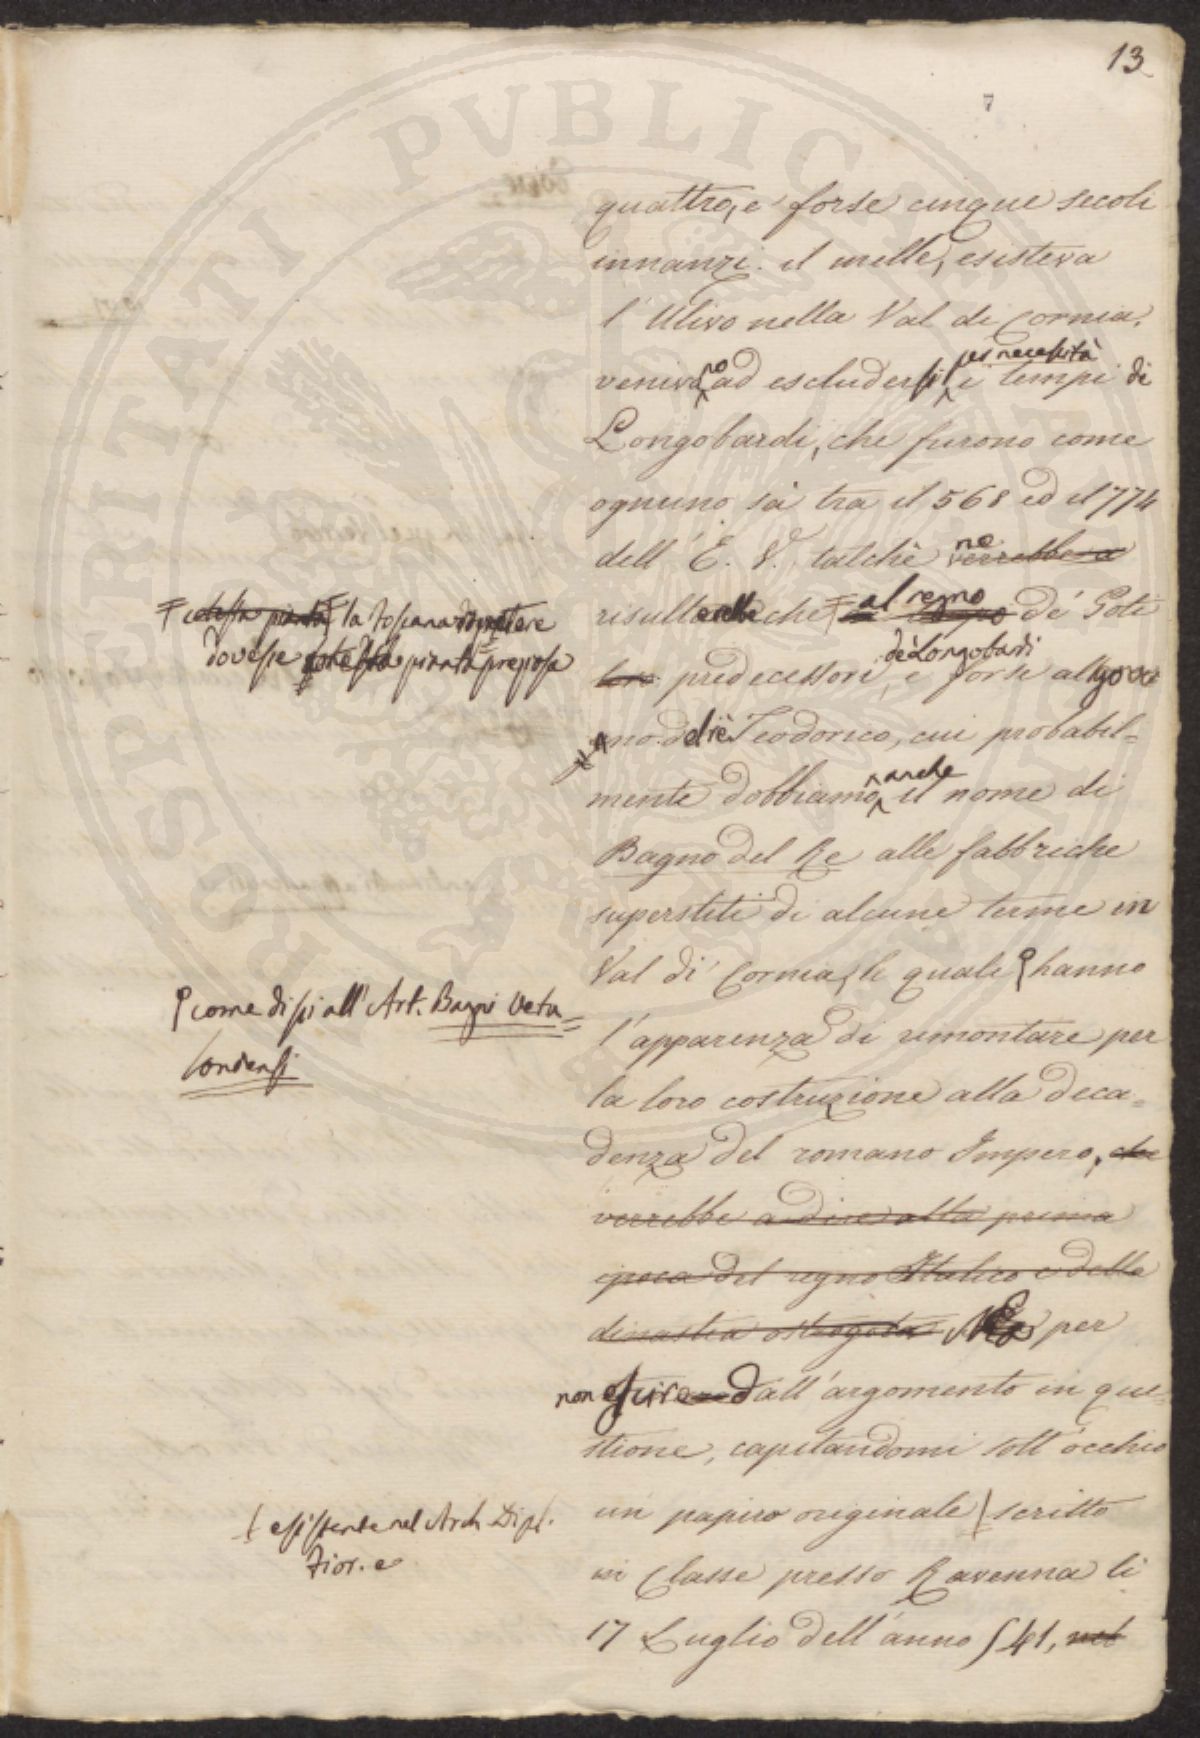 13
7
quattro, e forse cinque secoli
innanzi il mille, esisteva
l'Ulivo nella Val di Cornia,
per necessità
no
veniva ad escludersi i tempi di
Longobardi, che furono come
ognuno sà tra il 568 ed il 774
ne
dell'E. V. talchè verrebbe a
al regno
risulterebbe che dé Goti
dè Longobardi
loro predecessori, e forse al gover
no del rè Teodorico, cui probabil=
anche
mente dobbiamo il nome di
Bagno del Re alle fabbriche
superstiti di alcune terme in
Val di Cornia, le quali hanno
l'apparenza di rimontare per
la loro costruzione alla deca=
denza del romano Impero, che
verrebbe a dire alla prima
epoca del regno Italico e della
dinastia ostrogota per
non escire dall'argomento in que=
stione, capitandomi sott'occhio
un papiro originale scritto
in Classe presso Ravenna li
17 Luglio dell'anno 541, nel
cotesta pianta la Toscana ripetere
dovesse cotesta pianta preziosa
come dissi all'Art. Bagni Vetu=
lonensi
esistente nel Arch. Dipl.
Fior. e
PROSPERITATI PVBLICAE